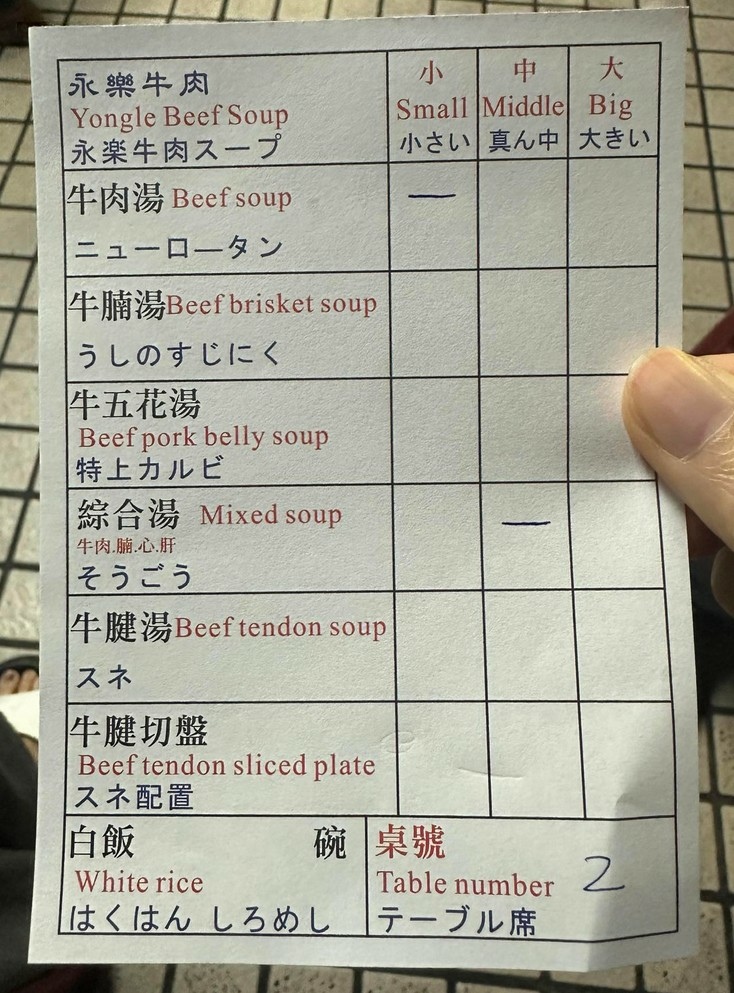 永樂牛肉
Yongle Beef Soup
永楽牛肉スープ
小
Small
小さい
中
Middle
真ん中
大
Big
大きい
牛肉湯 Beef soup
ニューロ—タン
一
牛腩湯Beef brisket soup
うしのすじにく
牛五花湯
Beef pork belly soup
特上カルビ
綜合湯 Mixed soup
牛肉.腩.心.肝
そうごう
一
牛腱湯Beef tendon soup
スネ
牛腱切盤
Beef tendon sliced plate
スネ配置
白飯 碗
White rice
はくはん しろめし
桌號
Table number 2
テーブル席